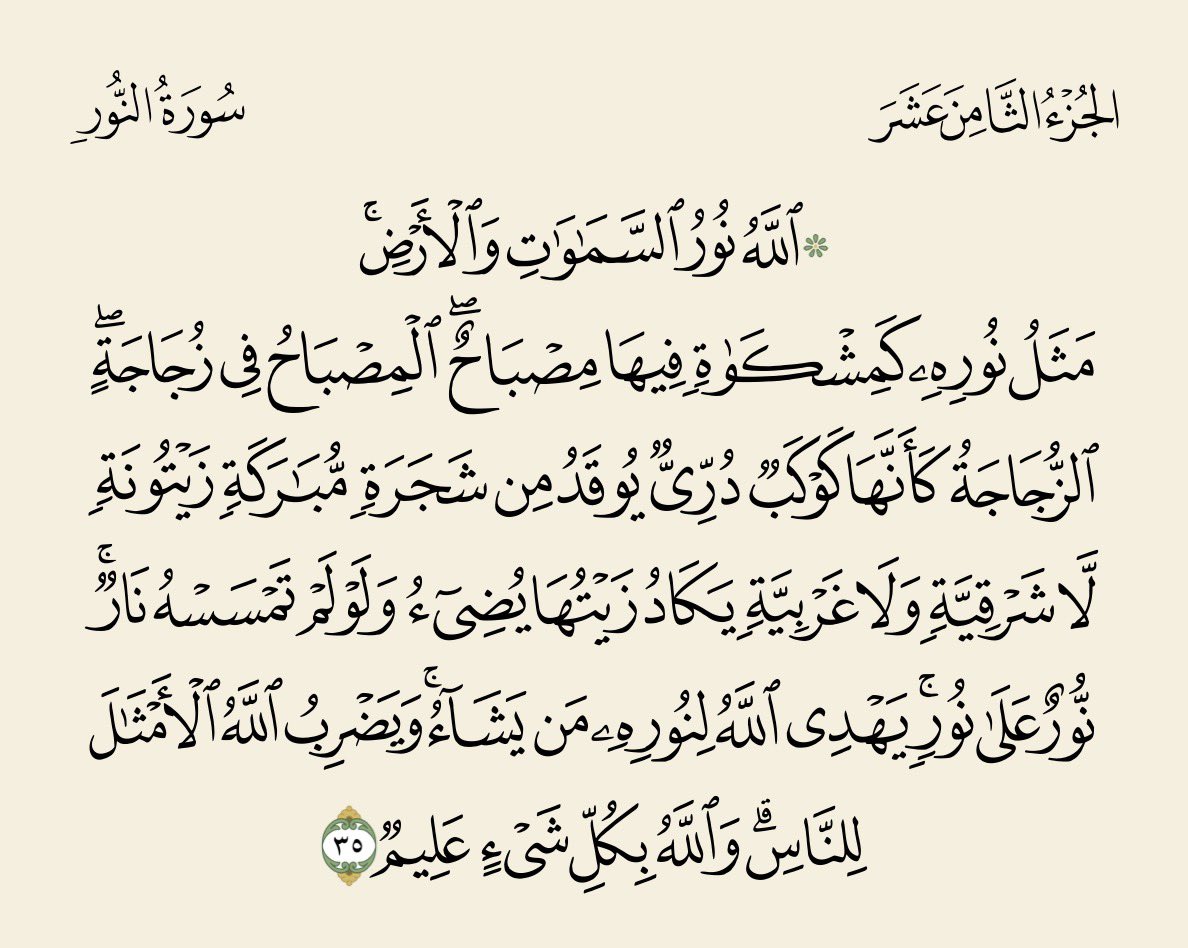 الجُزْءُ الثَّامِنَ عَشَرَ
سُورَةُ النُّورِ
۞ ٱللَّهُ نُورُ ٱلسَّمَٰوَٰتِ وَٱلۡأَرۡضِۚ
مَثَلُ نُورِهِۦ كَمِشۡكَوٰةٖ فِيهَا مِصۡبَاحٌۖ ٱلۡمِصۡبَاحُ فِي زُجَاجَةٍۖ
ٱلزُّجَاجَةُ كَأَنَّهَا كَوۡكَبٞ دُرِّيّٞ يُوقَدُ مِن شَجَرَةٖ مُّبَٰرَكَةٖ زَيۡتُونَةٖ
لَّا شَرۡقِيَّةٖ وَلَا غَرۡبِيَّةٖ يَكَادُ زَيۡتُهَا يُضِيٓءُ وَلَوۡ لَمۡ تَمۡسَسۡهُ نَارٞۚ
نُّورٌ عَلَىٰ نُورٖۚ يَهۡدِي ٱللَّهُ لِنُورِهِۦ مَن يَشَآءُۚ وَيَضۡرِبُ ٱللَّهُ ٱلۡأَمۡثَٰلَ
لِلنَّاسِۗ وَٱللَّهُ بِكُلِّ شَيۡءٍ عَلِيمٞ ٣٥